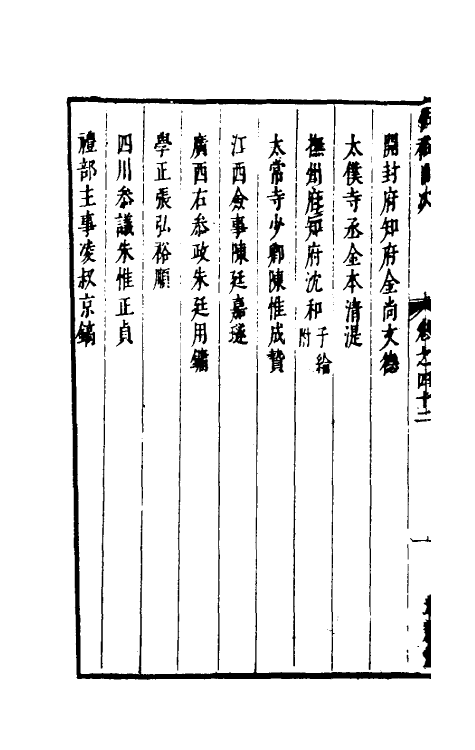 卷之四十二
開封府知府金尚文德
太僕寺丞金本清湜
撫州府知府沈和
附子綸
太常寺少卿陳惟成贄
江西僉事陳廷嘉璲
廣西右叅政朱廷用鏞
學正張弘裕順
四川叅議朱惟正貞
禮部主事凌叔京鎬